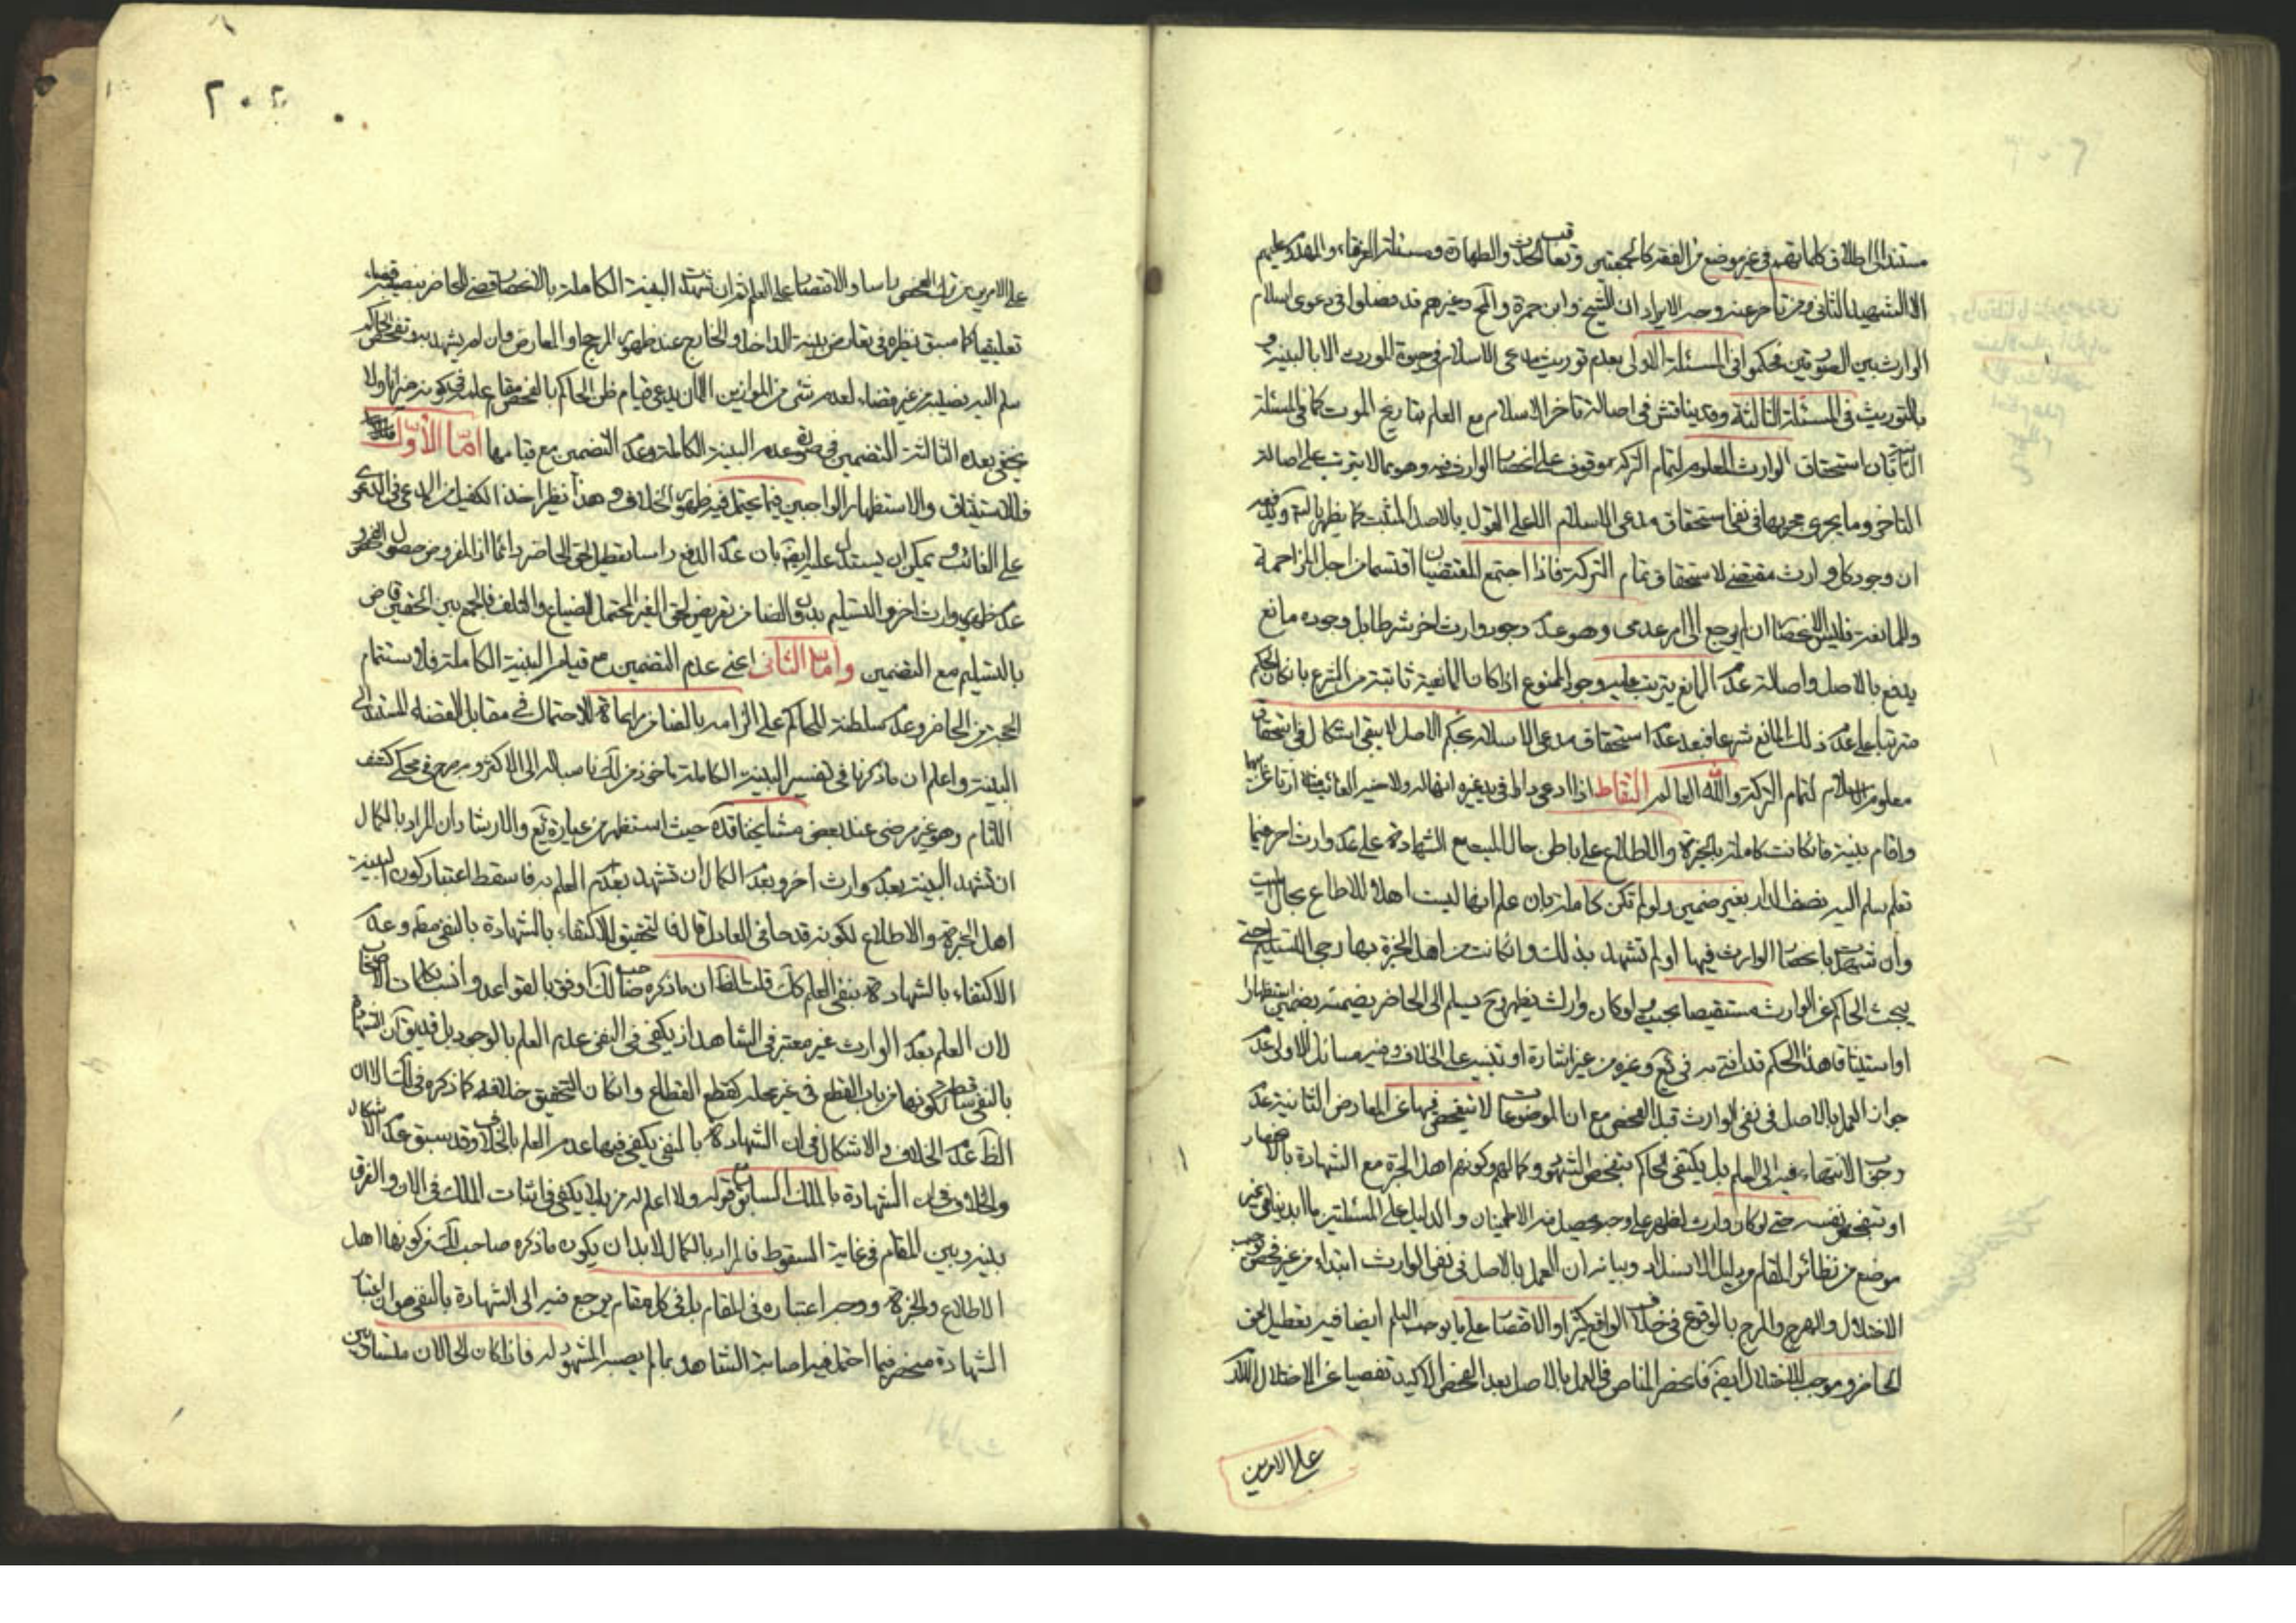 مستندا الى اطلاق كلماتهم في غير موضع من الفقه كالجمعتين وتعاقب الحدث والطهارة ومسئلة الغرقاء والمهدوم عليهم
الا الشهيد الثاني ومن تاخر عنه وجه الايراد ان الشيخ وابن حمزة والمحقق وغيرهم قد فصلوا في دعوى اسلام
الوارث بين الصورتين فحكموا في المسئلة الاولى بعدم توريث مدعي الاسلام في حيوة المورث الا بالبينة و
بالتوريث في المسئلة الثالثة وقد يناقش في اصالة تاخر الاسلام مع العلم بتاريخ الموت كما في المسئلة
بان استحقاق الوارث المعلوم لتمام التركة موقوف على انحصار الوارث فيه وهو مما لا يترتب على اصالة
التاخر وما يجري مجريها في نفي استحقاق مدعي الاسلام الا على القول بالاصل المثبت كما يظهر بالتامل ويدفعه
ان وجود كل وارث مقتضي لاستحقاق تمام التركة فاذا اجتمع المقتضيان اقتسما من اجل المزاحمة
والممانعة فليس الانحصار ان لم يرجع الى امر عدمي وهو عدم وجود وارث اخر شرطا بل وجوده مانع
يدفع بالاصل واصالة عدم المانع يترتب عليه وجود الممنوع اذا كان المانعية ثابتة من الشرع بان كان الحكم
مترتبا على عدم ذلك المانع شرعا فبعد عدم استحقاق مدعي الاسلام بحكم الاصل لا يبقى اشكال في استحقاق
معلوم الاسلام لتمام التركة والله العالم التقاط اذا ادعى دارا في يد غيره انها له ولاخيه الغائب مثلا ارثا عن ابيهما
واقام بينة فان كانت كاملة بالخبرة والاطلاع على باطن حال الميت مع الشهادة على عدم وارث اخر فيما
تعلم سلم اليه نصف الدار بغير ضمين ولو لم تكن كاملة بان علم انها ليست اهلا للاطلاع بحال الميت
وان شهدت بانحصار الوارث فيها او لم تشهد بذلك وان كانت من اهل الخبرة بها رجي التسليم حتى
يبحث الحاكم عن الوارث مستقصيا بحيث لو كان وارث لظهر وح يسلم الى الحاضر نصيبه بضمين استظهارا
او استيثاقا هذا الحكم قد افتى به في يع وغيره من غير اشارة او تنبيه على الخلاف وفيه مسائل الاولى عدم
جواز العمل بالاصل في نفي الوارث قبل الفحص مع ان الموضوعات لا يتفحص فيها عن المعارض الثانية عدم
وجوب الانتهاء فيه الى العلم بل يكتفي الحاكم بتفحص الشهود وكمالهم وكونهم اهل الخبرة مع الشهادة بالانحصار
او بتفحص نفسه حتى لو كان وارث لظهر على وجه يحصل منه الاطمينان والدليل على المسئلتين ما ابديناه في غير
موضع من نظائر المقام وبدليل الانسداد وبيانه ان العمل بالاصل في نفي الوارث ابتداء من غير فحص يوجب
الاختلال والهرج والمرج بالوقوع في خلاف الواقع كثيرا والاقتصار على ما يوجب العلم ايضا فيه تعطيل لحق
الحاضر وموجب للاختلال ايضا فانحصر المناص في العمل بالاصل بعد الفحص الاكيد تفصيا عن الاختلال اللازم
على الامرين
٢٠٢
على الامرين من ترك الفحص راسا والاقتصار على العلم ثم ان شهدت البينة الكاملة بالانحصار قضى للحاضر بنصيبه قضاء
تعليقيا كما سبق نظيره في تعارض بينة الداخل والخارج عند ظهور المرجح او المعارض وان لم يشهد به بتفحص الحاكم
سلم اليه نصيبه من غير قضاء لعدم شيء من الموازين الا ان يدعى قيام ظن الحاكم بالفحص مقام علمه في كونه ميزانا ولا
يخفى بعده الثالثة التضمين في صورة عدم البينة الكاملة وعدم التضمين مع قيامها اما الاول
فللاستيثاق والاستظهار الواجبين فيما يحتمل فيه ظهور الخلاف وهذا نظير اخذ الكفيل من المدعي في الدعوى
على الغائب ويمكن ان يستدل عليه ايضا بان عدم الدفع راسا تعطيل لحق الحاضر دائما اذ المفروض حصول الفحص و
عدم ظهور وارث اخر والتسليم بدون الضامن تعريض لحق الغير المحتمل للضياع والتلف فالجمع بين الحقين قاض
بالتسليم مع التضمين واما الثاني اعني عدم التضمين مع قيام البينة الكاملة فلاستتمام
الحجة من الحاضر وعدم سلطنة للحاكم على الزامه بالضامن مراعاة للاحتمال في مقابل القضاء المستند الى
البينة واعلم ان ما ذكرنا في تفسير البينة الكاملة ماخوذ من لك ناسبا له الى الاكثر وبه صرح في محكي كشف
اللثام وهو غير مرضي عند بعض مشايخنا قده حيث استظهر من عبارة يع والارشاد ان المراد بالكمال
ان تشهد البينة بعدم وارث اخر وبعدم الكمال ان تشهد بعدم العلم به فاسقط اعتبار كون البينة
اهل الخبرة والاطلاع لكونه قدحا في العادل قال في التحقيق الاكتفاء بالشهادة بالنفي مطلقا وعدم
الاكتفاء بالشهادة بنفي العلم كك قلت الظ ان ما ذكره صاحب لك اوفق بالقواعد وانسب بكلمات الاصحاب
لان العلم بعدم الوارث غير معتبر في الشاهد اذ يكفي في النفي عدم العلم بالوجود بل قد يق ان الشهادة
بالنفي ساقطة لكونها من باب القطع في غير محله كقطع القطاع وان كان التحقيق خلافه كما ذكره في لك الا ان
الظ عدم الخلاف والاشكال في ان الشهادة بالنفي يكفي فيها عدم العلم بالخلاف وقد سبق عدم الاشكال
والخلاف في ان الشهادة بالملك السابق وقوله ولا اعلم له مزيلا يكفي في اثبات الملك في الان والفرق
بينه وبين المقام في غاية السقوط فالمراد بالكمال لابد ان يكون ما ذكره صاحب لك من كونها اهل
الاطلاع والخبرة ووجه اعتباره في المقام بل في كل مقام يرجع فيه الى الشهادة بالنفي هو ان اعتبار
الشهادة منحصر فيما احتمل فيه اصابة الشاهد بما لم يصبه المشهود له فاذا كان الحالان متساويين